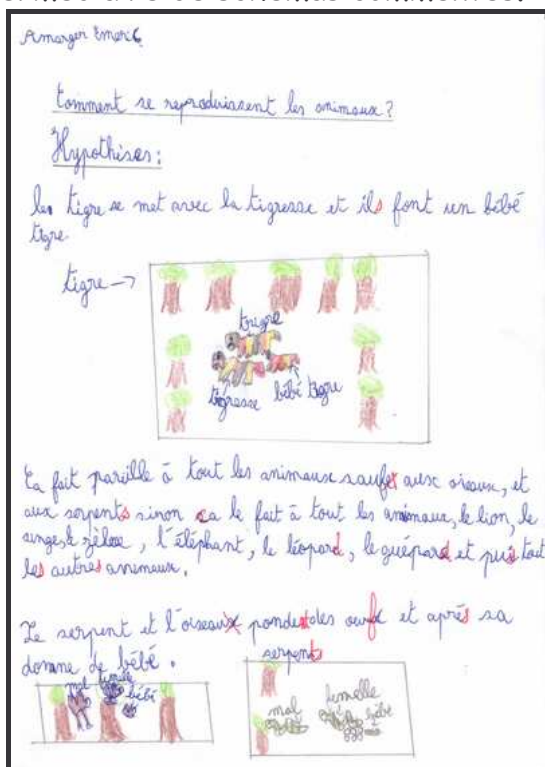 Amarger Emeric
Comment se reproduisent les animaux?
Hypothèses:
les tigre se met avec la tigresse et ils font un bébé
tigre.
tigre →
trigre
tigresse
bébé tigre
Ca fait pareille à tout les animaux saufet aux oiseaux, et
aux serpents sinon ca le fait à tout les animaux, le lion, le
singe, le zèbre, l'éléphant, le léopard, le guépard et puis tout
les autres annimaux.
Le serpent et l'oiseaux pondent des oeufs et aprés sa
donne de bébé.
serpents
mal
femelle
bébé
mal
femelle
bébé